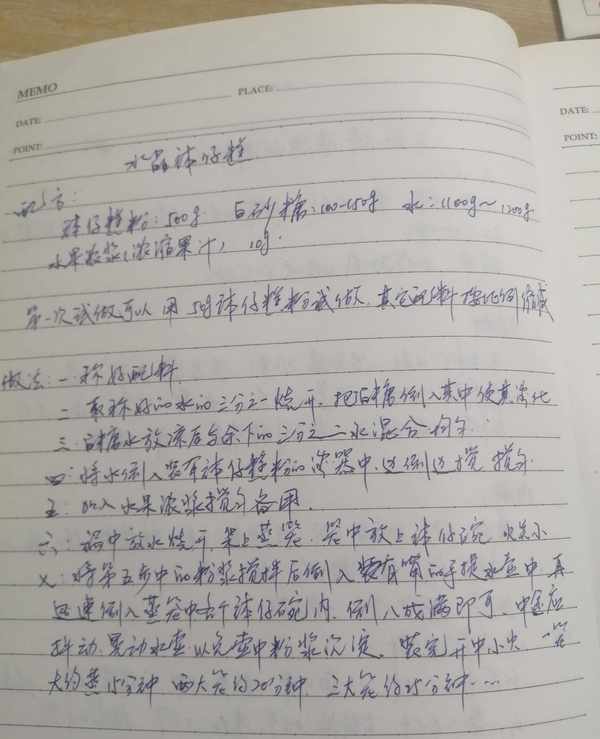 MEMO
PLACE:
DATE:
POINT:
DATE:
POINT:
水晶钵仔糕
配方:
钵仔糕粉:500g 白砂糖:100-150g 水:1100g~1200g
水果浓浆(浓缩果汁) 10g.
第一次试做可以用50g钵仔糕粉试做.其它配料按比例缩减
做法:一称好配料.
二.取称好的水的三分之一烧开,把白糖倒入其中使其溶化
三.白糖水放凉后与余下的三分之二水混合均匀.
四:将水倒入装有钵仔糕粉的容器中.边倒边搅 搅匀.
五.加入水果浓浆搅匀备用.
六:锅中放水烧开,架上蒸笼.笼中放上钵仔碗.火关小
七:将第五步中的粉浆搅拌后倒入装有嘴的手提水壶中.再
迅速倒入蒸笼中各个钵仔碗内.倒八成满即可.中途应
抖动.晃动水壶以免壶中粉浆沉淀.装完开中小火.一笼
大约蒸15分钟 两大笼约20分钟.三大笼约25分钟……